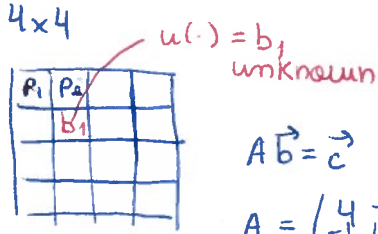 4x4
u(·) = b₁
unknown
P₁ P₂
b₁
A b⃗ = c⃗
A = ( 4
-1